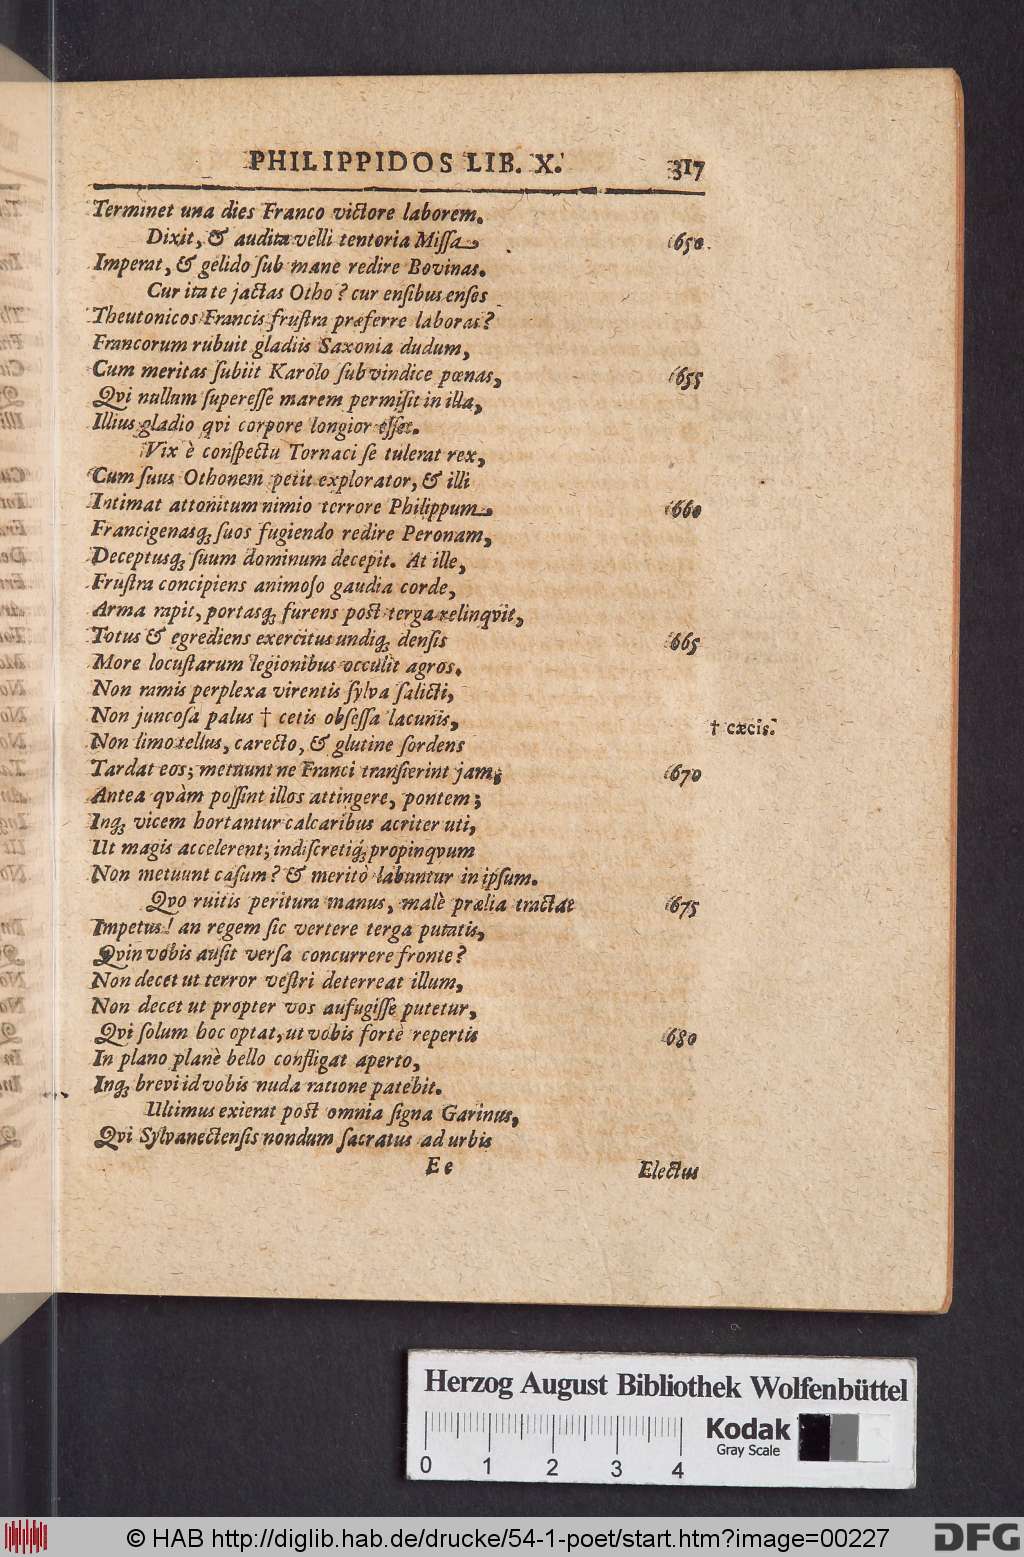 PHILIPPIDOS LIB. X. 317
Terminet una dies Franco victore laborem.
Dixit, & audita velli tentoria Missa, 650.
Imperat, & gelido sub mane redire Bovinas.
Cur ita te jactas Otho? cur ensibus enses
Theutonicos Francis frustra præferre laboras?
Francorum rubuit gladiis Saxonia dudum,
Cum meritas subiit Karolo sub vindice pœnas, 655
Qvi nullum superesse marem permisit in illa,
Illius gladio qvi corpore longior esset.
Vix è conspectu Tornaci se tulerat rex,
Cum suus Othonem petit explorator, & illi
Intimat attonitum nimio terrore Philippum. 660
Francigenasq; suos fugiendo redire Peronam,
Deceptusq; suum dominum decepit. At ille,
Frustra concipiens animoso gaudia corde,
Arma rapit, portasq; furens post terga relinqvit,
Totus & egrediens exercitus undiq; densis 665
More locustarum legionibus occulit agros.
Non ramis perplexa virentis sylva salicti,
Non juncosa palus † cetis obsessa lacunis, † cæcis.
Non limo tellus, carecto, & glutine sordens
Tardat eos; metuunt ne Franci transierint jam, 670
Antea qvàm possint illos attingere, pontem;
Inq; vicem hortantur calcaribus acriter uti,
Ut magis accelerent; indiscretiq; propinqvum
Non metuunt casum? & meritò labuntur in ipsum.
Quo ruitis peritura manus, malè prælia tractat 675
Impetus! an regem sic vertere terga putatis,
Qvin vobis ausit versa concurrere fronte?
Non decet ut terror vestri deterreat illum,
Non decet ut propter vos aufugisse putetur,
Qvi solum hoc optat, ut vobis fortè repertis 680
In plano planè bello confligat aperto,
Inq; brevi id vobis nuda ratione patebit.
Ultimus exierat post omnia signa Garinus,
Qvi Sylvanectensis nondum sacratus ad urbis
Ee Electus
Herzog August Bibliothek Wolfenbüttel
Kodak
Gray Scale
0 1 2 3 4
© HAB http://diglib.hab.de/drucke/54-1-poet/start.htm?image=00227
DFG